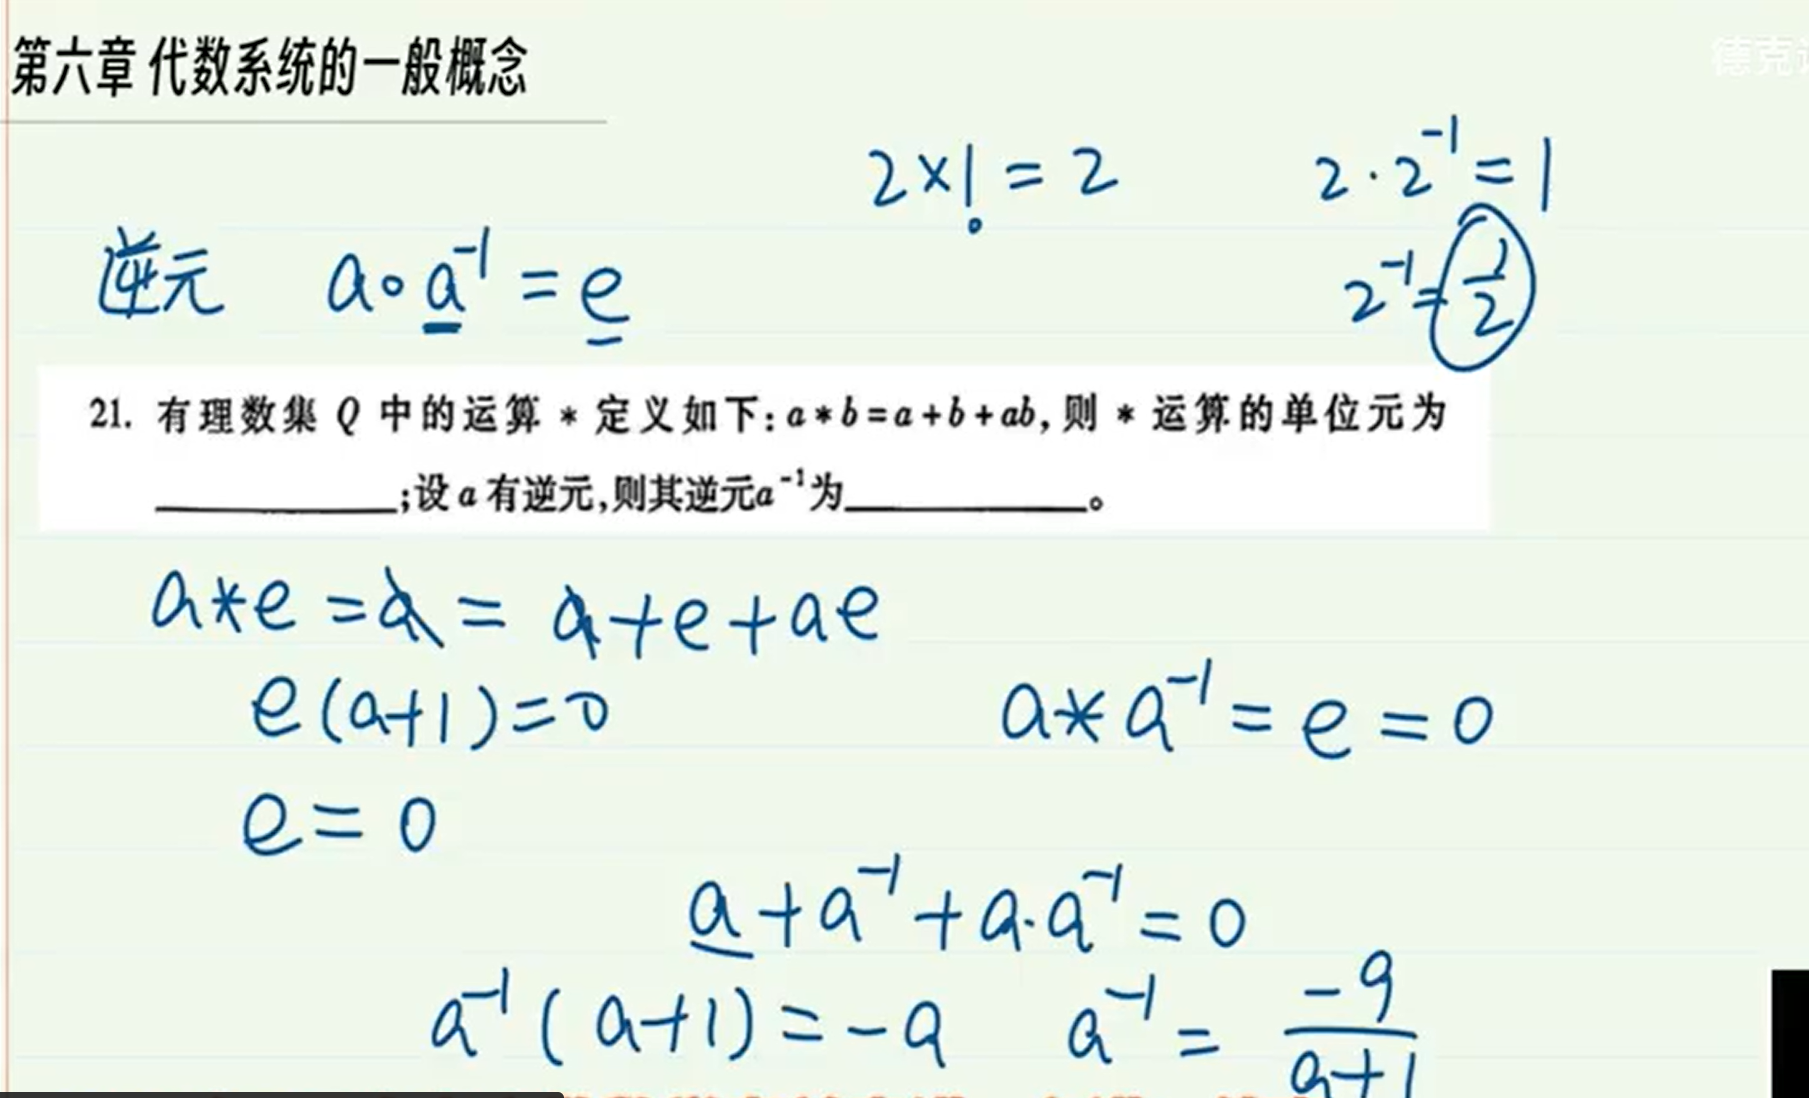 第六章 代数系统的一般概念
德克
2×1=2
2·2⁻¹=1
逆元 a∘a⁻¹=e
2⁻¹=1/2
21. 有理数集 Q 中的运算 * 定义如下:a*b=a+b+ab,则 * 运算的单位元为
____________;设 a 有逆元,则其逆元a⁻¹为____________。
a*e=a=a+e+ae
e(a+1)=0
a*a⁻¹=e=0
e=0
a+a⁻¹+a·a⁻¹=0
a⁻¹(a+1)=-a a⁻¹=-a/a+1